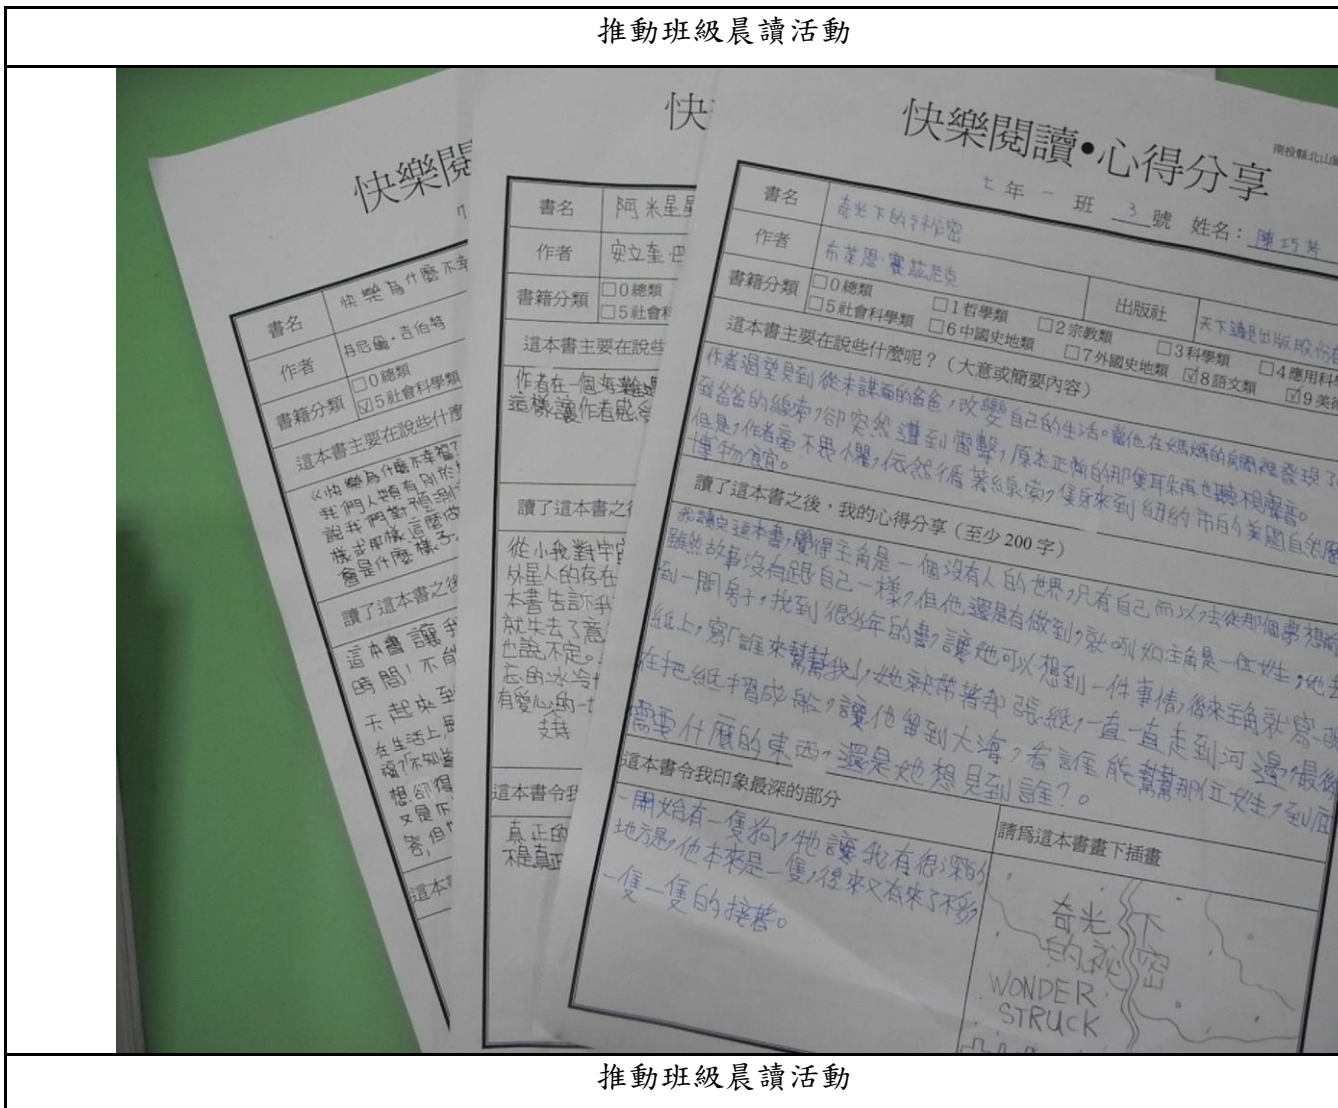 推動班級晨讀活動
快樂閱
書名 快樂為什麼不幸
作者 丹尼爾·吉伯特
書籍分類 □0總類
☑5社會科學類
這本書主要在說些什麼
《快樂為什麼不幸福?
我們人類有別於
說我們對預測
樣或那樣這麼做
會是什麼樣子。
讀了這本書之後
這本書讓我
時間!不能
天起來到
在生活上,
福?不知道
想卻得
又是不
答,但
這本
快
書名 阿米星星
作者 安立奎·巴
書籍分類 □0總類
□5社會科
這本書主要在說些
作者在一個海難
這樣讓作者感
讀了這本書之
從小我對宇宙
外星人的存在
本書告訴我
就失去了意
也說不定。
忘的冰冷
有愛心的一
支持
這本書令我
真正的
不是真正
快樂閱讀•心得分享
南投縣北山
七年一班 3號 姓名:陳巧
書名 奇光下的祕密
作者 布萊恩·賽茲尼克
出版社 天下遠見出版股份有
書籍分類 □0總類 □1哲學類 □2宗教類 □3科學類 □4應用科
□5社會科學類 □6中國史地類 □7外國史地類 ☑8語文類 ☑9美術
這本書主要在說些什麼呢?(大意或簡要內容)
作者渴望見到從未謀面的爸爸,改變自己的生活。當他在媽媽的房間裡發現了
到爸爸的線索,卻突然遭到雷擊,原本正常的那隻耳朵再也聽不見聲音。
但是,作者毫不畏懼,依然循著線索,隻身來到紐約市的美國自然歷
博物館。
讀了這本書之後,我的心得分享(至少200字)
我讀完這本書,覺得主角是一個沒有人的世界,只有自己而以,去從那個夢想
雖然故事沒有跟自己一樣,但他還是有做到,就例如主角是一位女生,她去
到一間房子,找到很多年的書,讓她可以想到一件事情,後來主角就寫一
紙上,寫「誰來幫幫我」,她就帶著那張紙,一直一直走到河邊,最後
在把紙摺成船,讓他留到大海,看誰能幫幫那位女生,到底
需要什麼的東西,還是她想見到誰?。
這本書令我印象最深的部分
一開始有一隻狗,牠讓我有很深的
地方是,他本來是一隻,後來又有來了不少,
一隻一隻的接著。
請爲這本書畫下插畫
奇光下
的祕密
WONDER
STRUCK
推動班級晨讀活動